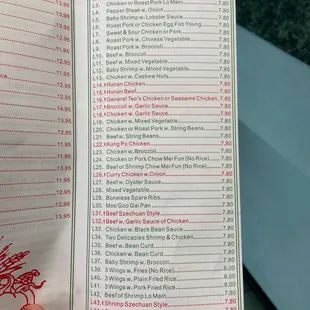 13.95
L3. Chicken or Roast Pork Lo Mein 7.80
L4. Pepper Steak w. Onion 7.80
L5. Baby Shrimp w. Lobster Sauce 7.80
L6. Roast Pork or Chicken Egg Foo Young 7.80
L7. Sweet & Sour Chicken or Pork 7.80
L8. Roast Pork w. Chinese Vegetable 7.80
L9. Roast Pork w. Broccoli 7.80
L10. Beef w. Broccoli 7.80
L11. Beef w. Mixed Vegetable 7.80
L12. Baby Shrimp w. Mixed Vegetable 7.80
L13. Chicken w. Cashew Nuts 7.80
L14. Hunan Chicken 7.80
L15. Hunan Beef 7.80
L16. General Tso's Chicken or Seasame Chicken 7.80
L17. Broccoli w. Garlic Sauce 7.80
L18. Chicken w. Garlic Sauce 7.80
L19. Chicken w. Mixed Vegetable 7.80
L20. Chicken or Roast Pork w. String Beans 7.80
L21. Beef w. String Beans 7.80
L22. Kung Po Chicken 7.80
L23. Chicken w. Broccoli 7.80
L24. Chicken or Pork Chow Mei Fun (No Rice) 7.80
L25. Beef or Shrimp Chow Mei Fun (No Rice) 7.80
L26. Curry Chicken w. Onion 7.80
L27. Beef w. Oyster Sauce 7.80
L28. Mixed Vegetable 7.80
L29. Boneless Spare Ribs 7.80
L30. Moo Goo Gai Pan 7.80
L31. Beef Szechuan Style 7.80
L32. Beef w. Garlic Sauce of Chicken 7.80
L33. Chicken w. Black Bean Sauce 7.80
L34. Two Delicacies Shrimp & Chicken 7.80
L35. Beef w. Bean Curd 7.80
L36. Chicken w. Bean Curd 7.80
L38. Baby Shrimp w. Broccoli 7.80
L39. 3 Wings w. Fries (No Rice) 8.00
L40. 3 Wings w. Plain Fried Rice 8.00
L41. 3 Wings w. Pork Fried Rice 8.00
L42. Beef of Shrimp Lo Mein 7.80
L43. Shrimp Szechuan Style 7.80